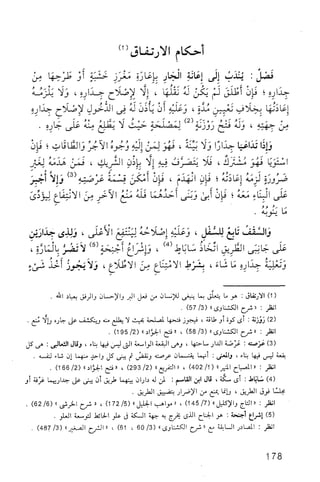 أحكام الارتفاق (١)
فصل : يُنْدَبُ إِلَى إِعَانَةِ الْجَارِ بِإِعَارَةِ مَغْرَزِ خَشَبَةٍ أَوْ طَرْحِهَا مِنْ
جِدَارِهِ ؛ فَإِنْ أَطْلَقَ لَمْ يَكُنْ لَهُ نَقْلُهَا ، إِلَّا لِإِصْلَاحِ جِدَارِهِ ، وَلَا يَلْزَمُهُ
إِعَادَتُهَا بِخِلَافِ تَعْيِينِ مُدَّةٍ ، وَعَلَيْهِ أَنْ يَأْذَنَ لَهُ فِى الدُّخُولِ لِإِصْلَاحِ جِدَارِهِ
مِنْ جِهَتِهِ ، وَلَهُ فَتْحُ رَوْزَنَةٍ (٢) لِمَصْلَحَةٍ حَيْثُ لَا يَطَّلِعُ مِنْهُ عَلَى جَارِهِ .
وَإِذَا تَدَاعَيَا جِدَارًا وَلَا بَيِّنَةَ ، فَهُوَ لِمَنْ إِلَيْهِ وُجُوهُ الْآجُرِّ وَالطَّاقَاتُ ؛ فَإِنِ
اسْتَوَيَا فَهُوَ مُشْتَرَكٌ ، فَلَا يَتَصَرَّفُ فِيهِ إِلَّا بِإِذْنِ الشَّرِيكِ ، فَمَنْ هَدَمَهُ لِغَيْرِ
ضَرُورَةٍ لَزِمَهُ إِعَادَتُهُ ؛ فَإِنِ انْهَدَمَ ، فَإِنْ أَمْكَنَ قِسْمَةُ عَرْصَتِهِ (٣) وَإِلَّا أُجْبِرَ
عَلَى الْبِنَاءِ مَعَهُ ؛ فَإِنْ أَبَى وَبَنَى أَحَدُهُمَا فَلَهُ مَنْعُ الْآخَرِ مِنَ الِانْتِفَاعِ لِيُؤَدِّىَ
مَا يَنُوبُهُ .
وَالسَّقْفُ تَابِعٌ لِلسُّفْلِ ، وَعَلَيْهِ إِصْلَاحُهُ لِيَنْتَفِعَ الْأَعْلَى ، وَلِذِى جِدَارَيْنِ
عَلَى جَانِبَىِ الطَّرِيقِ اتِّخَاذُ سَابَاطٍ (٤) ، وَإِشْرَاعُ أَجْنِحَةٍ (٥) لَا تَضُرُّ بِالْمَارَّةِ ،
وَتَعْلِيَةُ جِدَارِهِ مَا شَاءَ ، بِشَرْطِ الِامْتِنَاعِ مِنَ الِاطِّلَاعِ ، وَلَا يَجُوزُ أَخْذُ شَىْءٍ
(١) الارتفاق : هو ما يتعلق بما ينبغى للإنسان من فعل البر والإحسان والرفق بعباد الله .
انظر : « شرح الكشناوى » (3/ 57)
(٢) رَوْزَنَة : أى كوة أو طاقة ، فيجوز فتحها لمصلحة بحيث لا يطلع منه وينكشف على جاره وإلا منع .
انظر : « شرح الكشناوى » (3/ 58) ، « فتح الجواد » (2/ 195)
(٣) عرصته : عرصة الدار ساحتها ، وهى البقعة الواسعة التى ليس فيها بناء ، وقال الثعالبى : هى كل
بقعة ليس فيها بناء ، والمعنى : أنهما يقتسمان عرصته ونقض ثم يبنى كل واحد منهما إن شاء لنفسه .
انظر : « المصباح المنير » (1/ 402) ، « التفريع » (2/ 293) ، « فتح الجواد » (2/ 166)
(٤) سَابَاط : أى سكة ، قال ابن القاسم : لمن له داران بينهما طريق أن يبنى على جداريهما غرفة أو
مجلسًا فوق الطريق ، وإنما يمنع من الإضرار بتضييق الطريق .
انظر : « التاج والإكليل » (7/ 145) ، « مواهب الجليل » (5/ 172) ، « شرح الخرشى » (6/ 62)
(٥) إشراع أجنحة : هو الجناح الذى يخرج به جهة السكة فى علو الحائط لتوسعة العلو .
انظر : المصادر السابقة مع « شرح الكشناوى » (3/ 60 ، 61) ، « الشرح الصغير » (3/ 487)
178